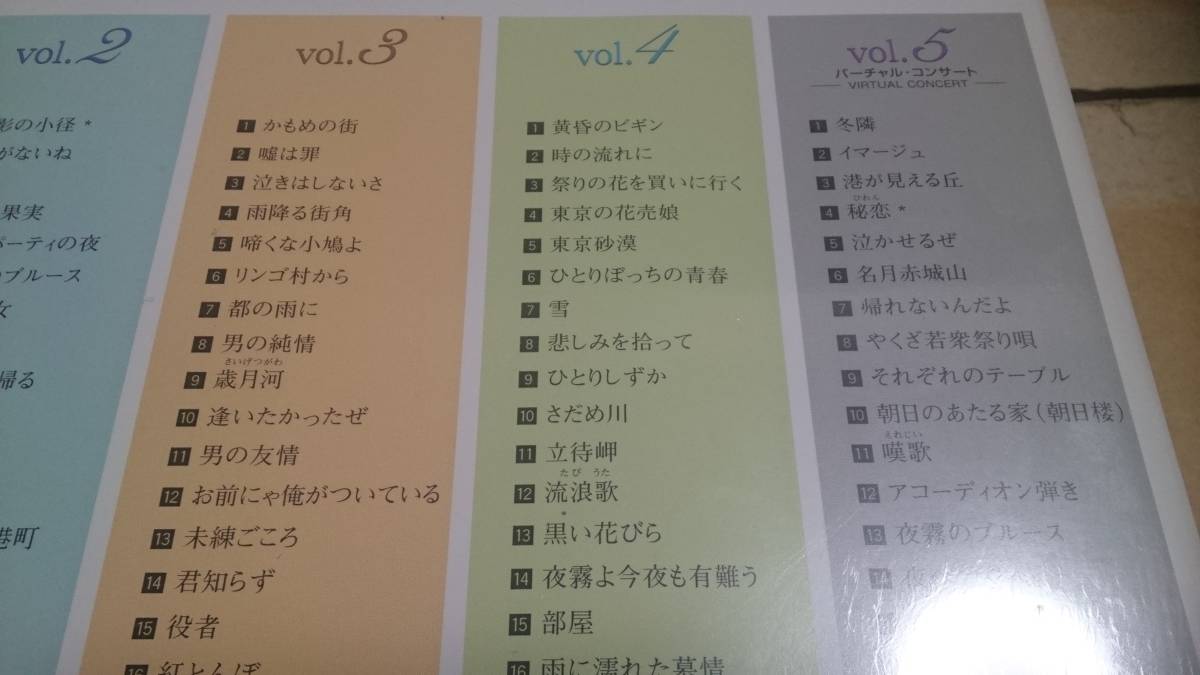 vol.2
影の小径*
がないね
果実
パーティの夜
のブルース
女
帰る
港町
vol.3
1 かもめの街
2 嘘は罪
3 泣きはしないさ
4 雨降る街角
5 啼くな小鳩よ
6 リンゴ村から
7 都の雨に
8 男の純情
さいげつがわ
9 歳月河
10 逢いたかったぜ
11 男の友情
12 お前にゃ俺がついている
13 未練ごころ
14 君知らず
15 役者
16 紅とんぼ
vol.4
1 黄昏のビギン
2 時の流れに
3 祭りの花を買いに行く
4 東京の花売娘
5 東京砂漠
6 ひとりぼっちの青春
7 雪
8 悲しみを拾って
9 ひとりしずか
10 さだめ川
11 立待岬
たび うた
12 流浪歌
13 黒い花びら
14 夜霧よ今夜も有難う
15 部屋
16 雨に濡れた慕情
vol.5
バーチャル・コンサート
VIRTUAL CONCERT
1 冬隣
2 イマージュ
3 港が見える丘
ひれん
4 秘恋*
5 泣かせるぜ
6 名月赤城山
7 帰れないんだよ
8 やくざ若衆祭り唄
9 それぞれのテーブル
10 朝日のあたる家(朝日楼)
えれじい
11 嘆歌
12 アコーディオン弾き
13 夜霧のブルース
14